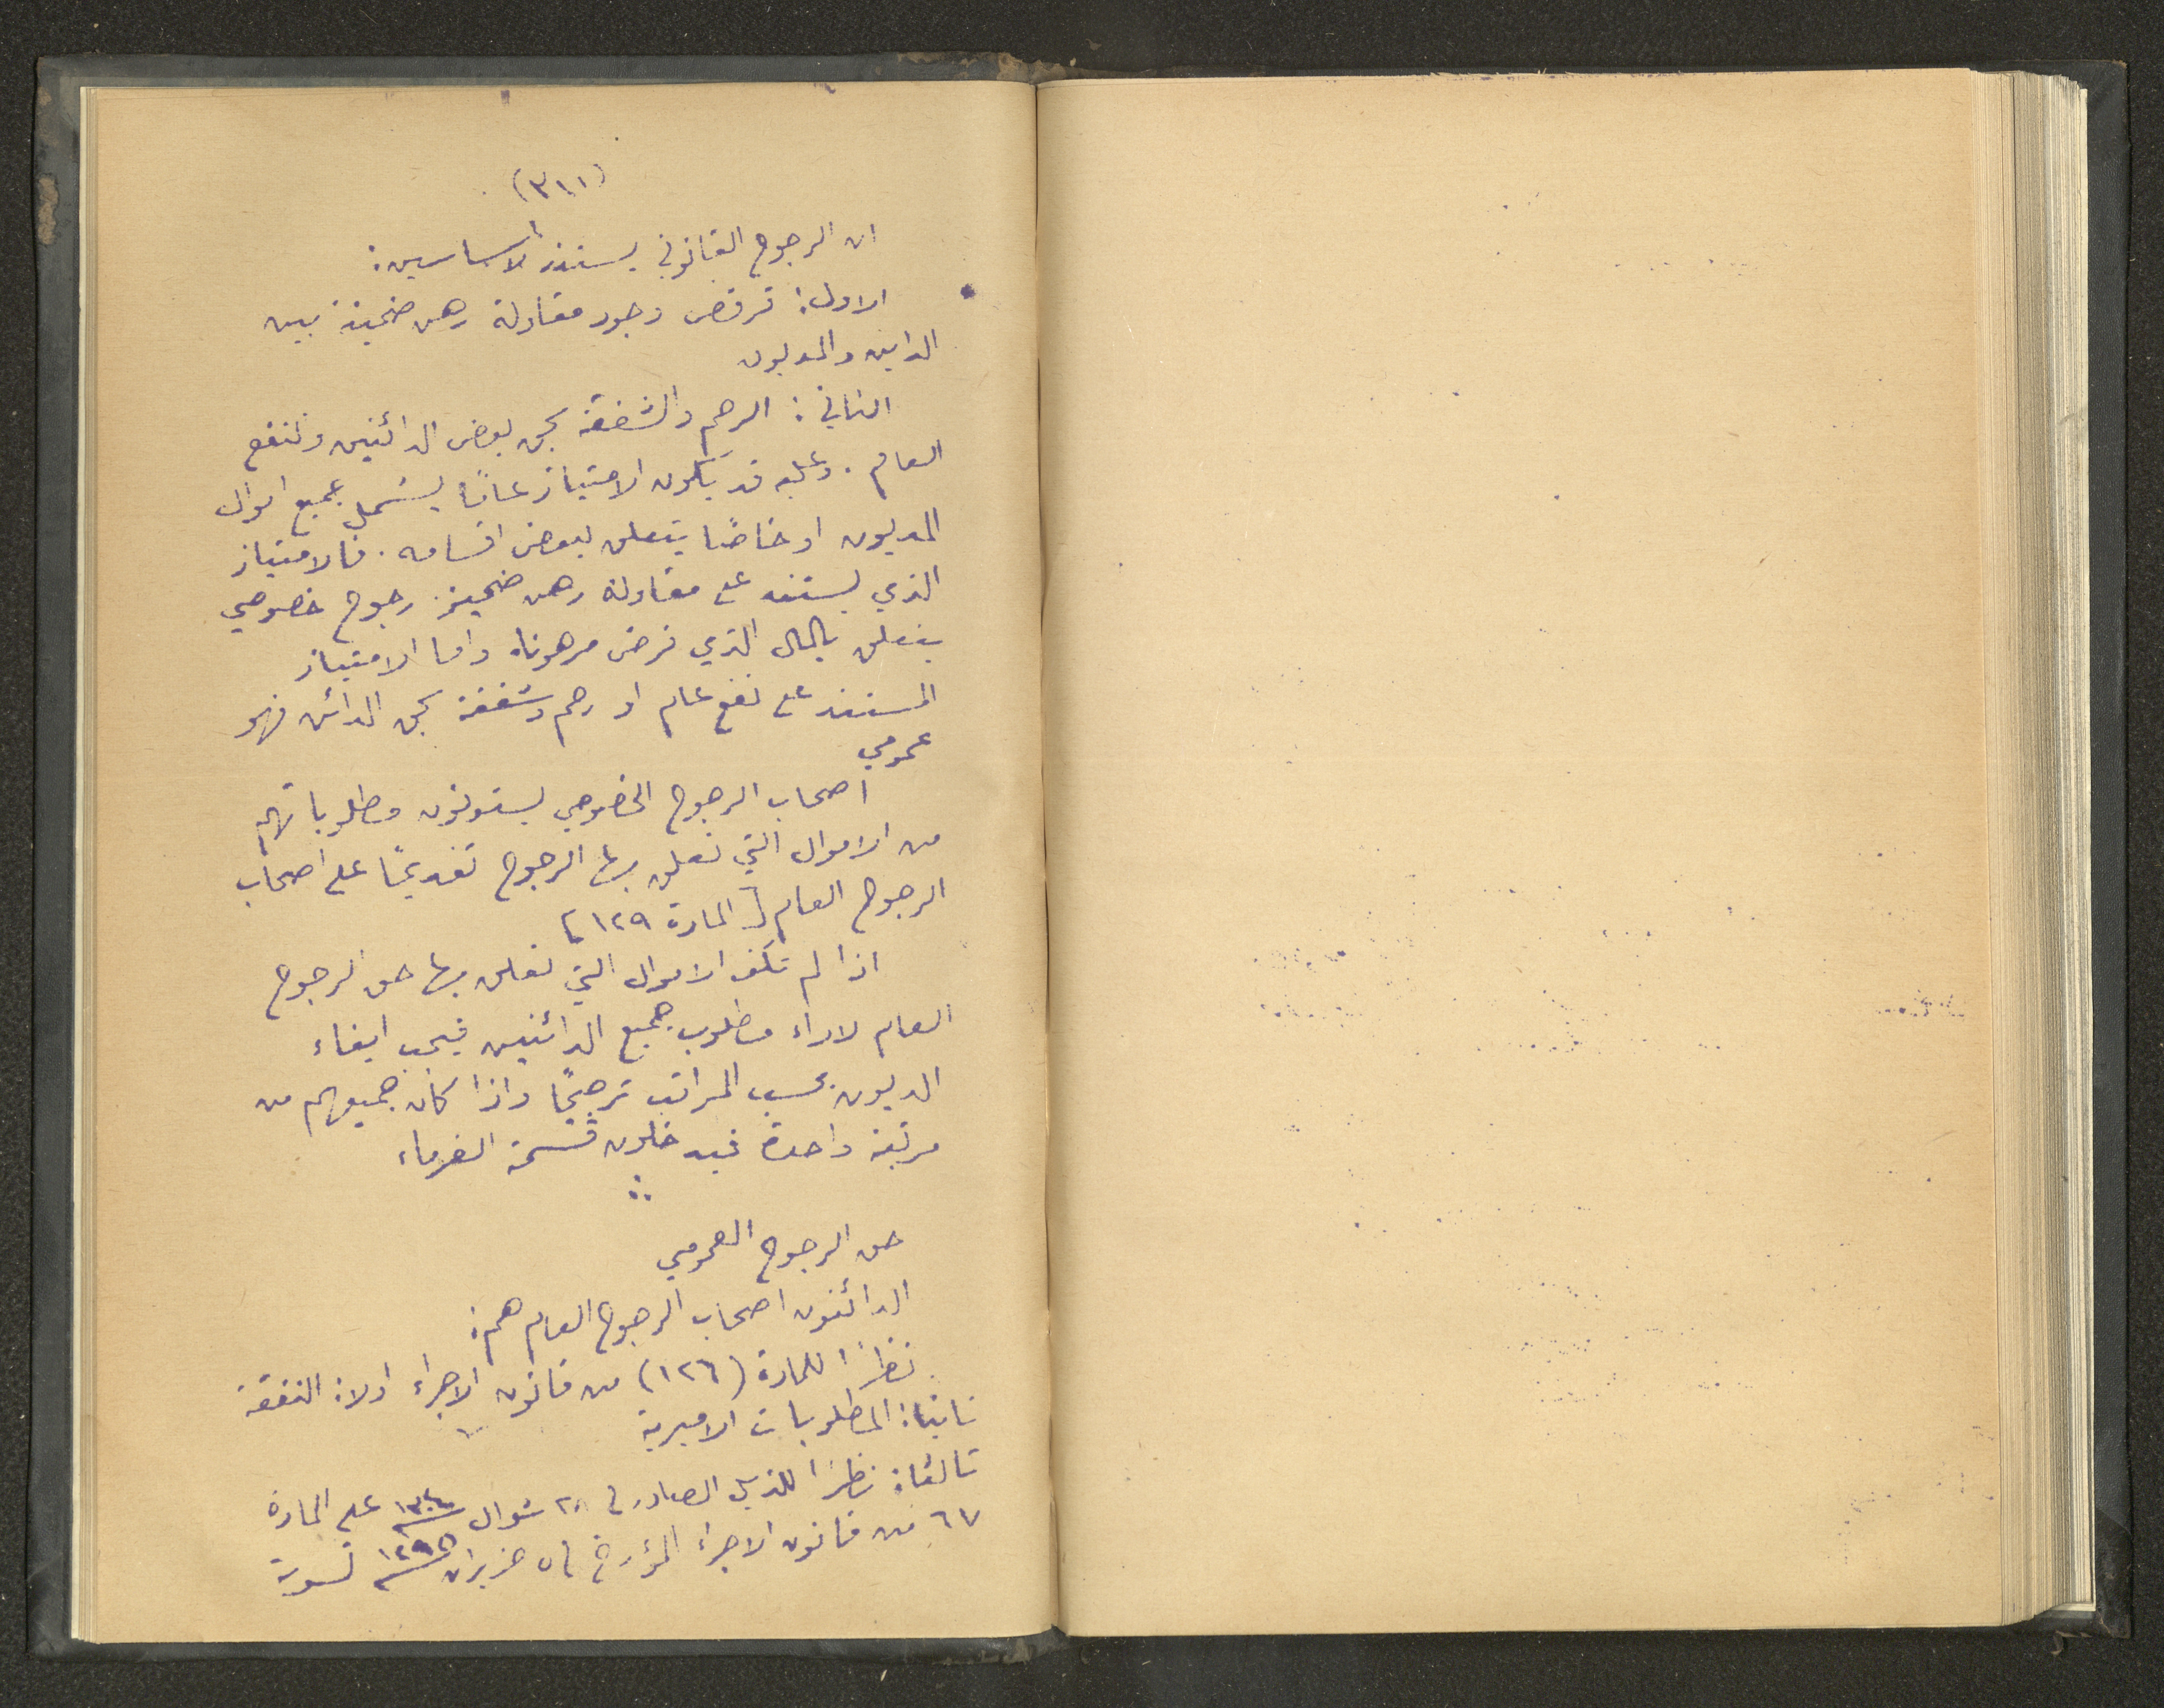 (٣١١)
ان الرجوح القانوني يستند لاساسين:
الاول: ترقص وجود مقاولة رهن ضمنية بين
الداين والمديون
الثاني: الرحم والشفقة بحق بعض الدائنين ولنفع
العام. وعليه قد يكون الامتياز عاماً يشمل جميع اموال
المديون او خاصاً يتعلق ببعض اقسامه. فالامتياز
الذي يستند على مقاولة رهن ضمنية رجوح خصوصي
يتعلق بالمال الذي فرض مرهوناً واما الامتياز
المستند على نفع عام او رحم وشفقة بحق الدائن فهو
عمومي
اصحاب الرجوح الخصوصي يستوفون مطلوباتهم
من الاموال التي تعلق بها الرجوح تقديماً على اصحاب
الرجوح العام [المادة ١٢٩]
اذا لم تكف الاموال التي تعلق بها حق الرجوح
العام لاداء مطلوب جميع الدائنين فيجب ايفاء
الديون بحسب المراتب ترجيحاً واذا كان جميعهم من
مرتبة واحدة فيدخلون قسمة الغرماء
حق الرجوح العمومي
الدائنون اصحاب الرجوح العام هم:
نظراً للمادة (١٢٦) من قانون الاجراء اولاً: النفقة
ثانياً: المطلوبات الاميرية
ثالثاً: نظراً للذيل الصادر في شوال على المادة
٦٧ من قانون الاجراء المؤرخ في ٥ حزيران تسوية